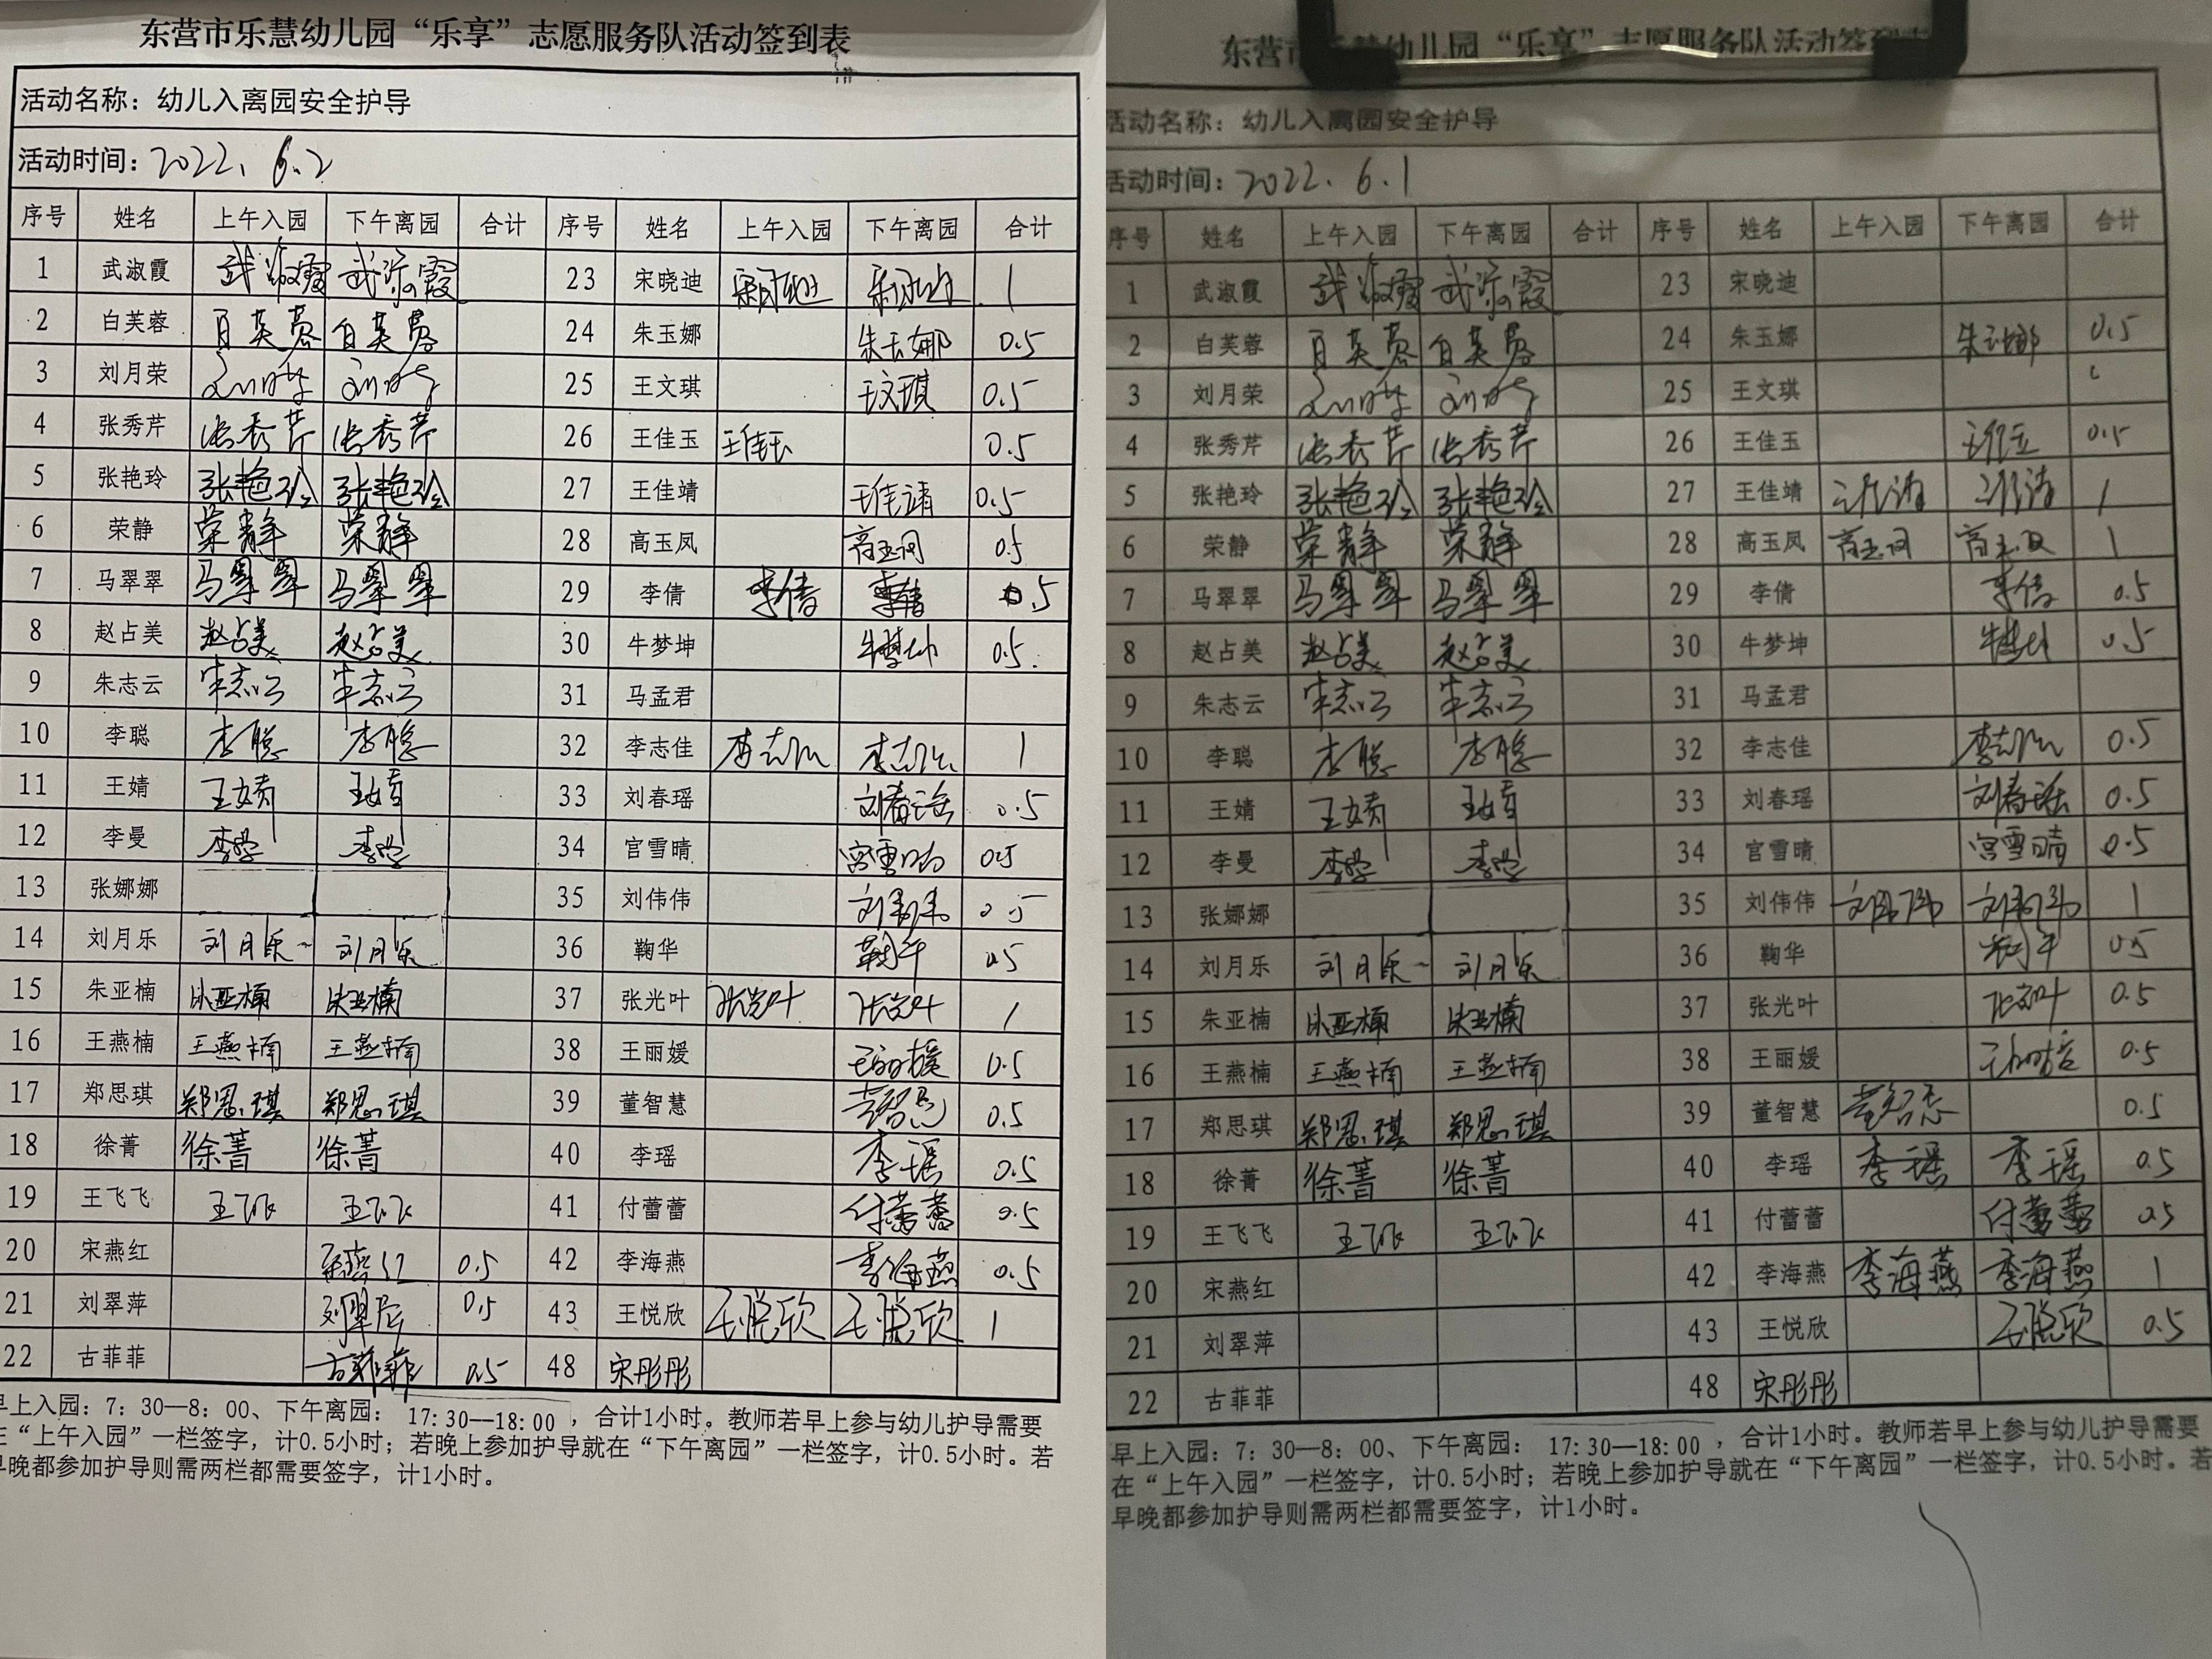 东营市乐慧幼儿园“乐享”志愿服务队活动签到表
活动名称：幼儿入离园安全护导
活动时间：2022. 6.2
序号 姓名 上午入园 下午离园 合计 序号 姓名 上午入园 下午离园 合计
1 武淑霞 武淑霞 武淑霞 23 宋晓迪 宋晓迪 宋晓迪 1
2 白芙蓉 白芙蓉 白芙蓉 24 朱玉娜 朱玉娜 0.5
3 刘月荣 刘月荣 刘月荣 25 王文琪 王文琪 0.5
4 张秀芹 张秀芹 张秀芹 26 王佳玉 王佳玉 0.5
5 张艳玲 张艳玲 张艳玲 27 王佳靖 王佳靖 0.5
6 荣静 荣静 荣静 28 高玉凤 高玉凤 0.5
7 马翠翠 马翠翠 马翠翠 29 李倩 李倩 李倩 0.5
8 赵占美 赵占美 赵占美 30 牛梦坤 牛梦坤 0.5
9 朱志云 朱志云 朱志云 31 马孟君
10 李聪 李聪 李聪 32 李志佳 李志佳 李志佳 1
11 王婧 王婧 王婧 33 刘春瑶 刘春瑶 0.5
12 李曼 李曼 李曼 34 官雪晴 官雪晴 0.5
13 张娜娜 35 刘伟伟 刘伟伟 0.5
14 刘月乐 刘月乐 刘月乐 36 鞠华 鞠华 0.5
15 朱亚楠 朱亚楠 朱亚楠 37 张光叶 张光叶 张光叶 1
16 王燕楠 王燕楠 王燕楠 38 王丽媛 王丽媛 0.5
17 郑思琪 郑思琪 郑思琪 39 董智慧 董智慧 0.5
18 徐菁 徐菁 徐菁 40 李瑶 李瑶 0.5
19 王飞飞 王飞飞 王飞飞 41 付蕾蕾 付蕾蕾 0.5
20 宋燕红 宋燕红 0.5 42 李海燕 李海燕 0.5
21 刘翠萍 刘翠萍 0.5 43 王悦欣 王悦欣 王悦欣 1
22 古菲菲 古菲菲 0.5 48 宋彤彤
早上入园：7：30—8：00、下午离园：17:30—18:00，合计1小时。教师若早上参与幼儿护导需要
在“上午入园”一栏签字，计0.5小时；若晚上参加护导就在“下午离园”一栏签字，计0.5小时。若
早晚都参加护导则需两栏都需要签字，计1小时。
东营市乐慧幼儿园“乐享”志愿服务队活动签到表
活动名称：幼儿入离园安全护导
活动时间：2022. 6.1
序号 姓名 上午入园 下午离园 合计 序号 姓名 上午入园 下午离园 合计
1 武淑霞 武淑霞 武淑霞 23 宋晓迪
2 白芙蓉 白芙蓉 白芙蓉 24 朱玉娜 朱玉娜 0.5
3 刘月荣 刘月荣 刘月荣 25 王文琪
4 张秀芹 张秀芹 张秀芹 26 王佳玉 王佳玉 0.5
5 张艳玲 张艳玲 张艳玲 27 王佳靖 王佳靖 王佳靖 1
6 荣静 荣静 荣静 28 高玉凤 高玉凤 高玉凤 1
7 马翠翠 马翠翠 马翠翠 29 李倩 李倩 0.5
8 赵占美 赵占美 赵占美 30 牛梦坤 牛梦坤 0.5
9 朱志云 朱志云 朱志云 31 马孟君
10 李聪 李聪 李聪 32 李志佳 李志佳 0.5
11 王婧 王婧 王婧 33 刘春瑶 刘春瑶 0.5
12 李曼 李曼 李曼 34 官雪晴 官雪晴 0.5
13 张娜娜 35 刘伟伟 刘伟伟 刘伟伟 1
14 刘月乐 刘月乐 刘月乐 36 鞠华 鞠华 0.5
15 朱亚楠 朱亚楠 朱亚楠 37 张光叶 张光叶 0.5
16 王燕楠 王燕楠 王燕楠 38 王丽媛 王丽媛 0.5
17 郑思琪 郑思琪 郑思琪 39 董智慧 董智慧 0.5
18 徐菁 徐菁 徐菁 40 李瑶 李瑶 李瑶 0.5
19 王飞飞 王飞飞 王飞飞 41 付蕾蕾 付蕾蕾 0.5
20 宋燕红 42 李海燕 李海燕 李海燕 1
21 刘翠萍 43 王悦欣 王悦欣 0.5
22 古菲菲 48 宋彤彤
早上入园：7：30—8：00、下午离园：17:30—18:00，合计1小时。教师若早上参与幼儿护导需要
在“上午入园”一栏签字，计0.5小时；若晚上参加护导就在“下午离园”一栏签字，计0.5小时。若
早晚都参加护导则需两栏都需要签字，计1小时。